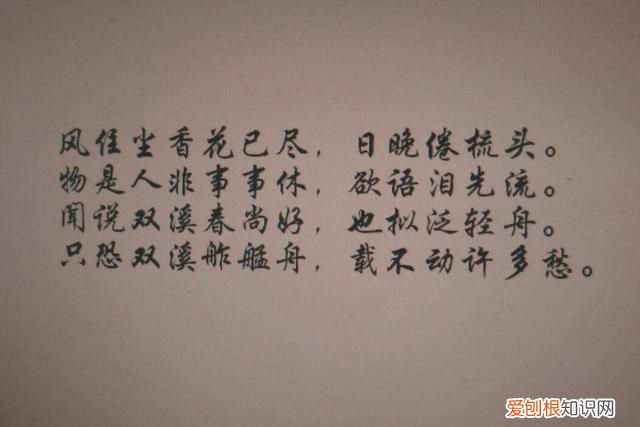 风住尘香花已尽，日晚倦梳头。
物是人非事事休，欲语泪先流。
闻说双溪春尚好，也拟泛轻舟。
只恐双溪舴艋舟，载不动许多愁。
爱刨根知识网